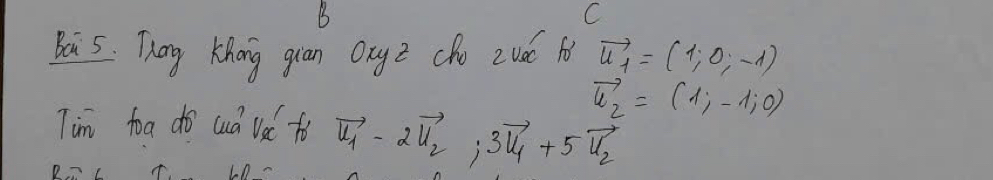 B C
Bài 5. Trong không gian Oxyz cho 2 véc tơ \vec{u_1} = (1; 0; -1)
\vec{u_2} = (1; -1; 0)
Tìm toạ độ của véc tơ \vec{u_1} - 2\vec{u_2} ; 3\vec{u_1} + 5\vec{u_2}